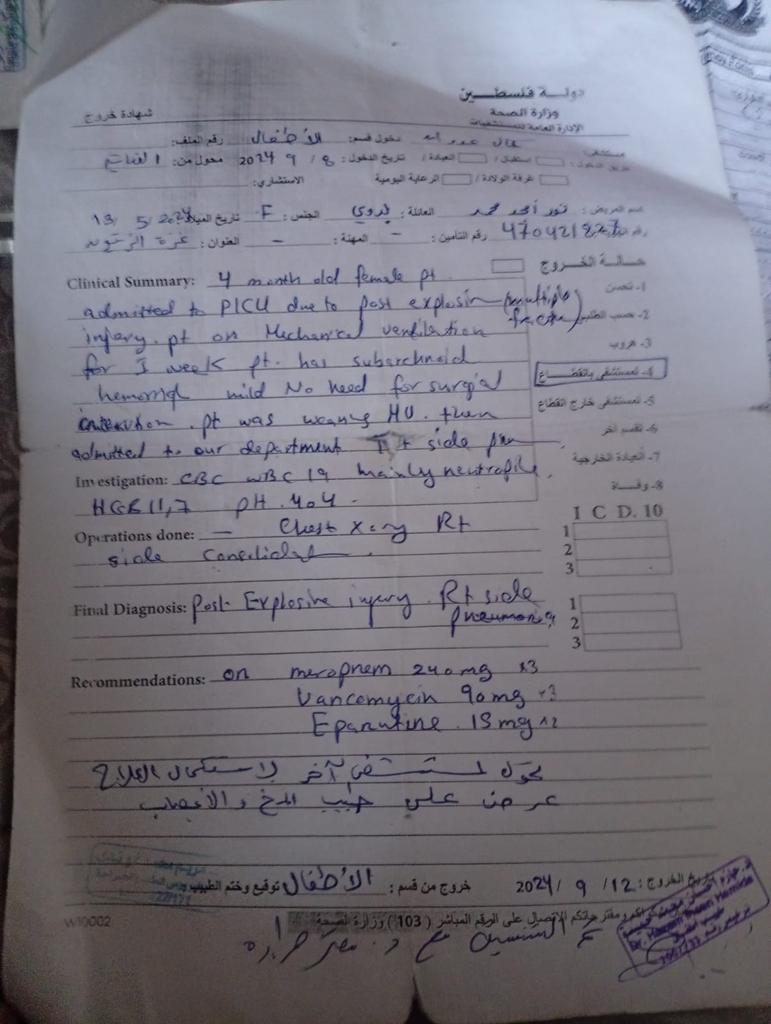 دولة فلسطين
وزارة الصحة
الإدارة العامة للمستشفيات
شهادة خروج
مستشفى: دخول قسم: الأطفال رقم الملف:
طريق الدخول: استقبال / العيادة / تاريخ الدخول: 8 / 9 / 2024 محول من:
غرفة الولادة / الرعاية اليومية الاستشاري:
اسم المريض: نور أمجد محمد العائلة: بدوي الجنس: F تاريخ الميلاد 13/ 5/ 2024
470421827 رقم التأمين: - المهنة: - العنوان: غزة الزيتون
حالة الخروج
1- تحسن
2- حسب الطلب
3- هروب
4- لمستشفى بالقطاع
5- لمستشفى خارج القطاع
6- لقسم آخر
7- العيادة الخارجية
8- وفاة
Clinical Summary: 4 month old female pt
admitted to PICU due to post explosin (multiple
injury. pt on Mechanical ventilation
for 1 week pt. has subarchnoid
hemorrigl mild No need for surgial
pt was weaning MV. then
admitted to our department side
Investigation: CBC WBC 19 mainly neutrofile.
HGB 11,7 pH .404.
Operations done: - Chest xray Rt
side
I C D. 10
1
2
3
Final Diagnosis: Post Explosive injury. Rt side
pneumonia
1
2
3
Recommendations: on meropnem 240 mg x3
Vancomycin 90 mg x3
Eparutine 15 mg x2
يحول لمستشفى آخر لاستكمال العلاج
عرض على طبيب المخ والأعصاب
تاريخ الخروج: 12/ 9 / 2024 خروج من قسم: الأطفال توقيع وختم الطبيب
الاتصال على الرقم المباشر ( 103 ) وزارة الصحة
W10002
التنسيق مع د.